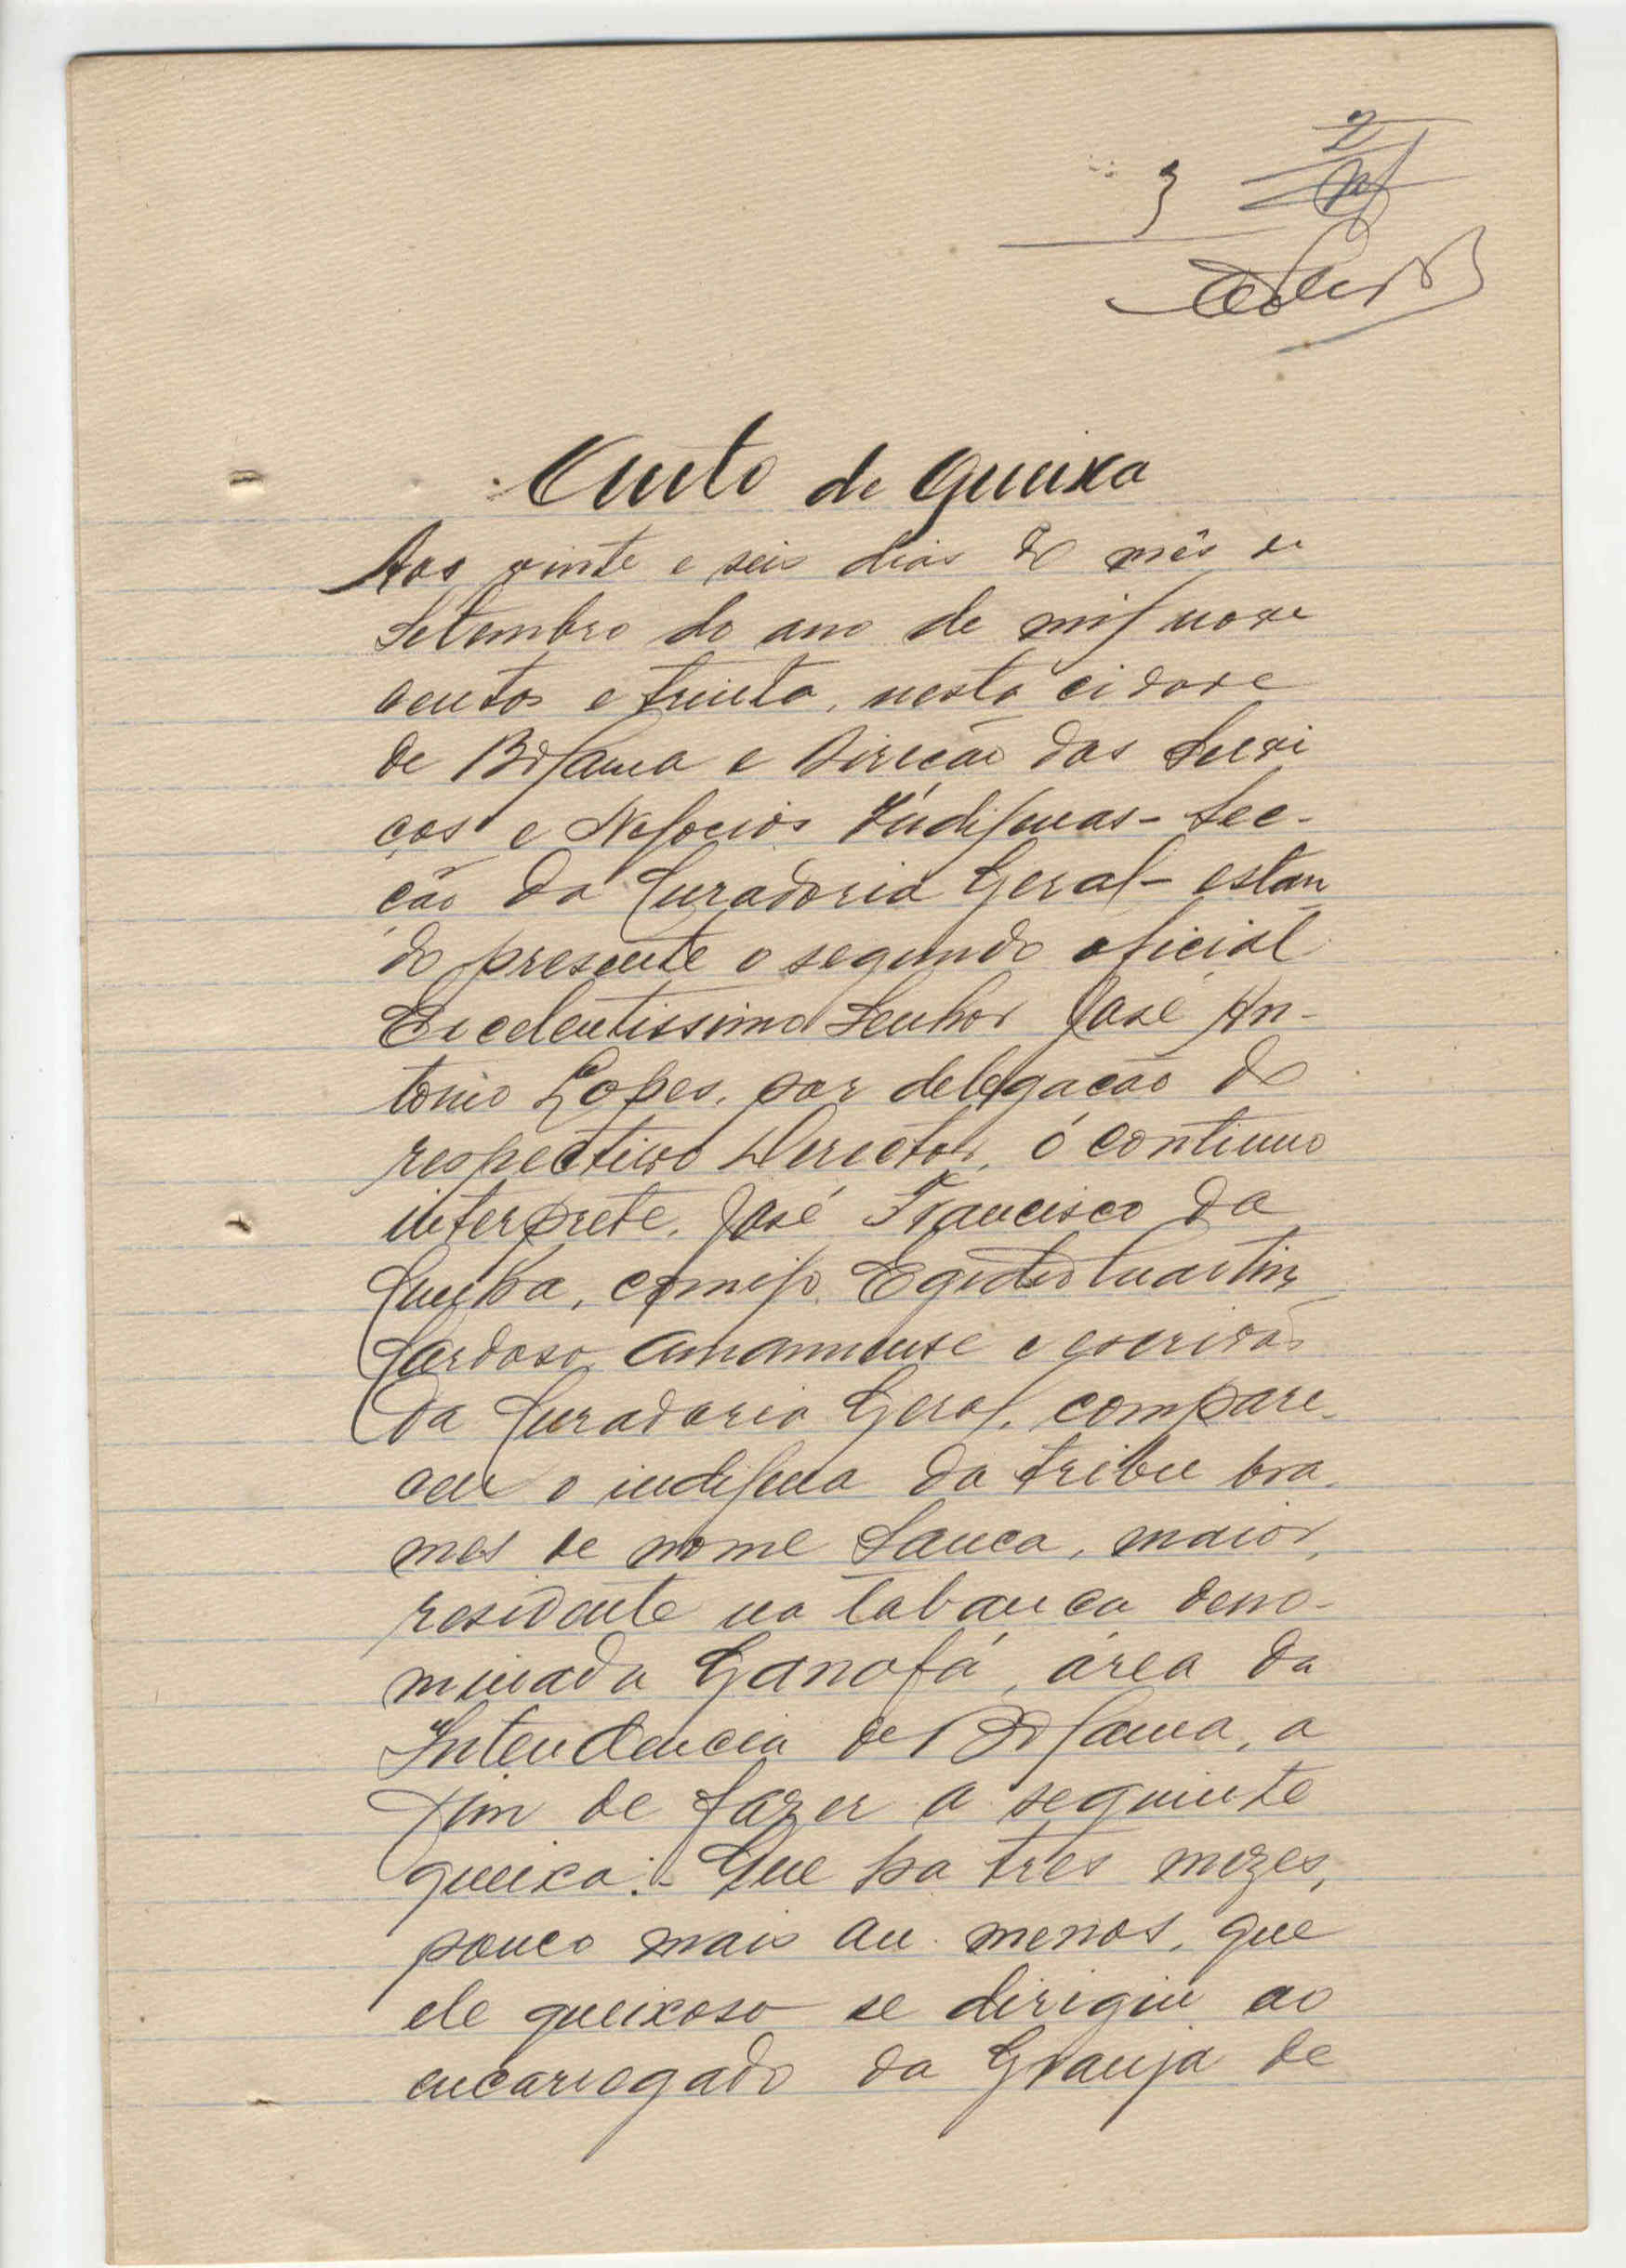 2
3
Auto de Queixa
Aos vinte e seis dias do mês de
Setembro do ano de mil nove
centos e trinta, nesta cidade
de Bolama e Direcão dos Servi
ços e Negocios Indigenas - Sec-
ção da Curadoria Geral - estan
do presente o segundo oficial
Excelentissimo Senhor José An-
tonio Lopes, por delegacão do
respectivo Director, o continuo
interprete, José Francisco da
Cunha, comigo Egidio Martins
Cardoso, amanuense e escrivão
da Curadoria Geral, compare-
ceu o indigena da tribu bra-
mes de nome Sanca, maior,
residente na tabanca deno-
minada Ganofá, área da
Intendencia de Bolama, a
fim de fazer a seguinte
queixa: - Que ha tres mezes,
pouco mais ou menos, que
ele queixoso se dirigiu ao
encarregado da Granja de